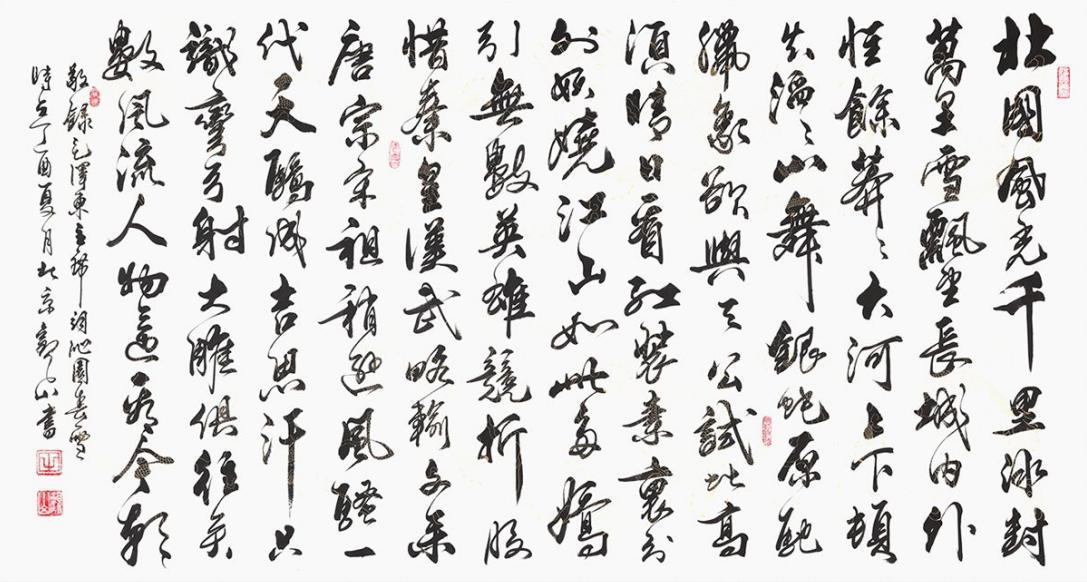 北國風光千里冰封
萬里雪飄望長城內外
惟餘莽〻大河上下頓
失滔〻山舞銀蛇原馳
臘象欲與天公試比高
須晴日看紅裝素裹分
外妖嬈江山如此多嬌
引無數英雄競折腰
惜秦皇漢武略輸文采
唐宗宋祖稍遜風騷一
代天驕成吉思汗只
識彎弓射大雕俱往矣
數風流人物還看今朝
敬録毛澤東主席詞沁園春雪
時在丁酉夏月北京郭山書